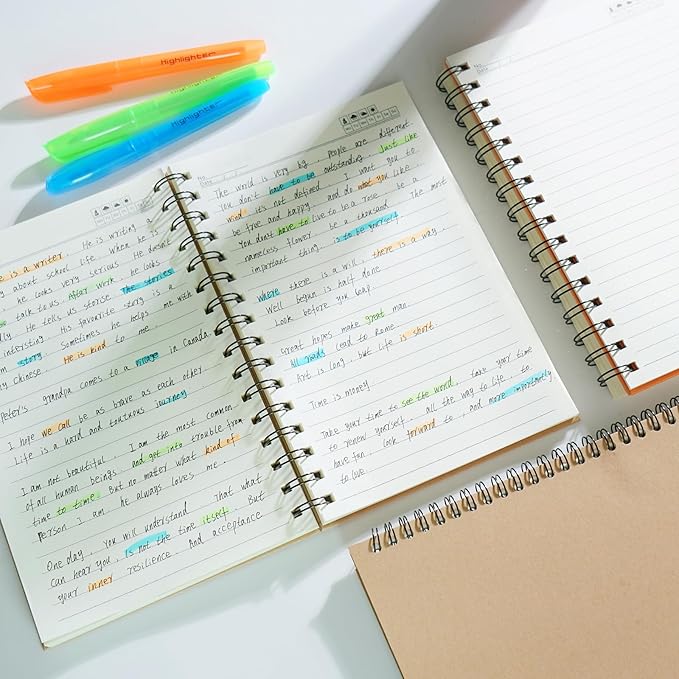 Highlighter
Highlighter
Highlighter
e is a writer . He is writing a
y about school life . When he
he looks very serious . He doesn't
talk to us . After work , he looks
dly . He tells us storise . The stories
interesting . His favorite story is a
story . Sometimes he helps me with
y Chinese . He is kind to me .
Peter's grandpa comes to a village in Canada
I hope we call be as brave as each other
Life is a hard and journey
I am not beautiful , I am the most common
of all human beings , and get into trouble from
time to time . But no matter what kind of
person I am , he always loves me .
One day , you will understand . That what
can hear you , is not the time itself . But
your inner resilience . And acceptance
No.
Date
The world is very big , people are different
We don't have to be outstanding . Just like
wind , it's not defined . I want you to
be free and happy , and do what you like .
You don't have to live to be a rose , be a
nameless flower , be a thousand . The most
important thing , is to be yourself
Where there is a will , there is a way .
Well begun is half done
Look before you leap
Great hopes make great man .
All roads lead to Rome .
Art is long , but life is short
Time is money
Take your time to see the world , take your time
to renew yourself , all the way to life , to
have fun , look forward to , and more importantly
to love .
No.
Date